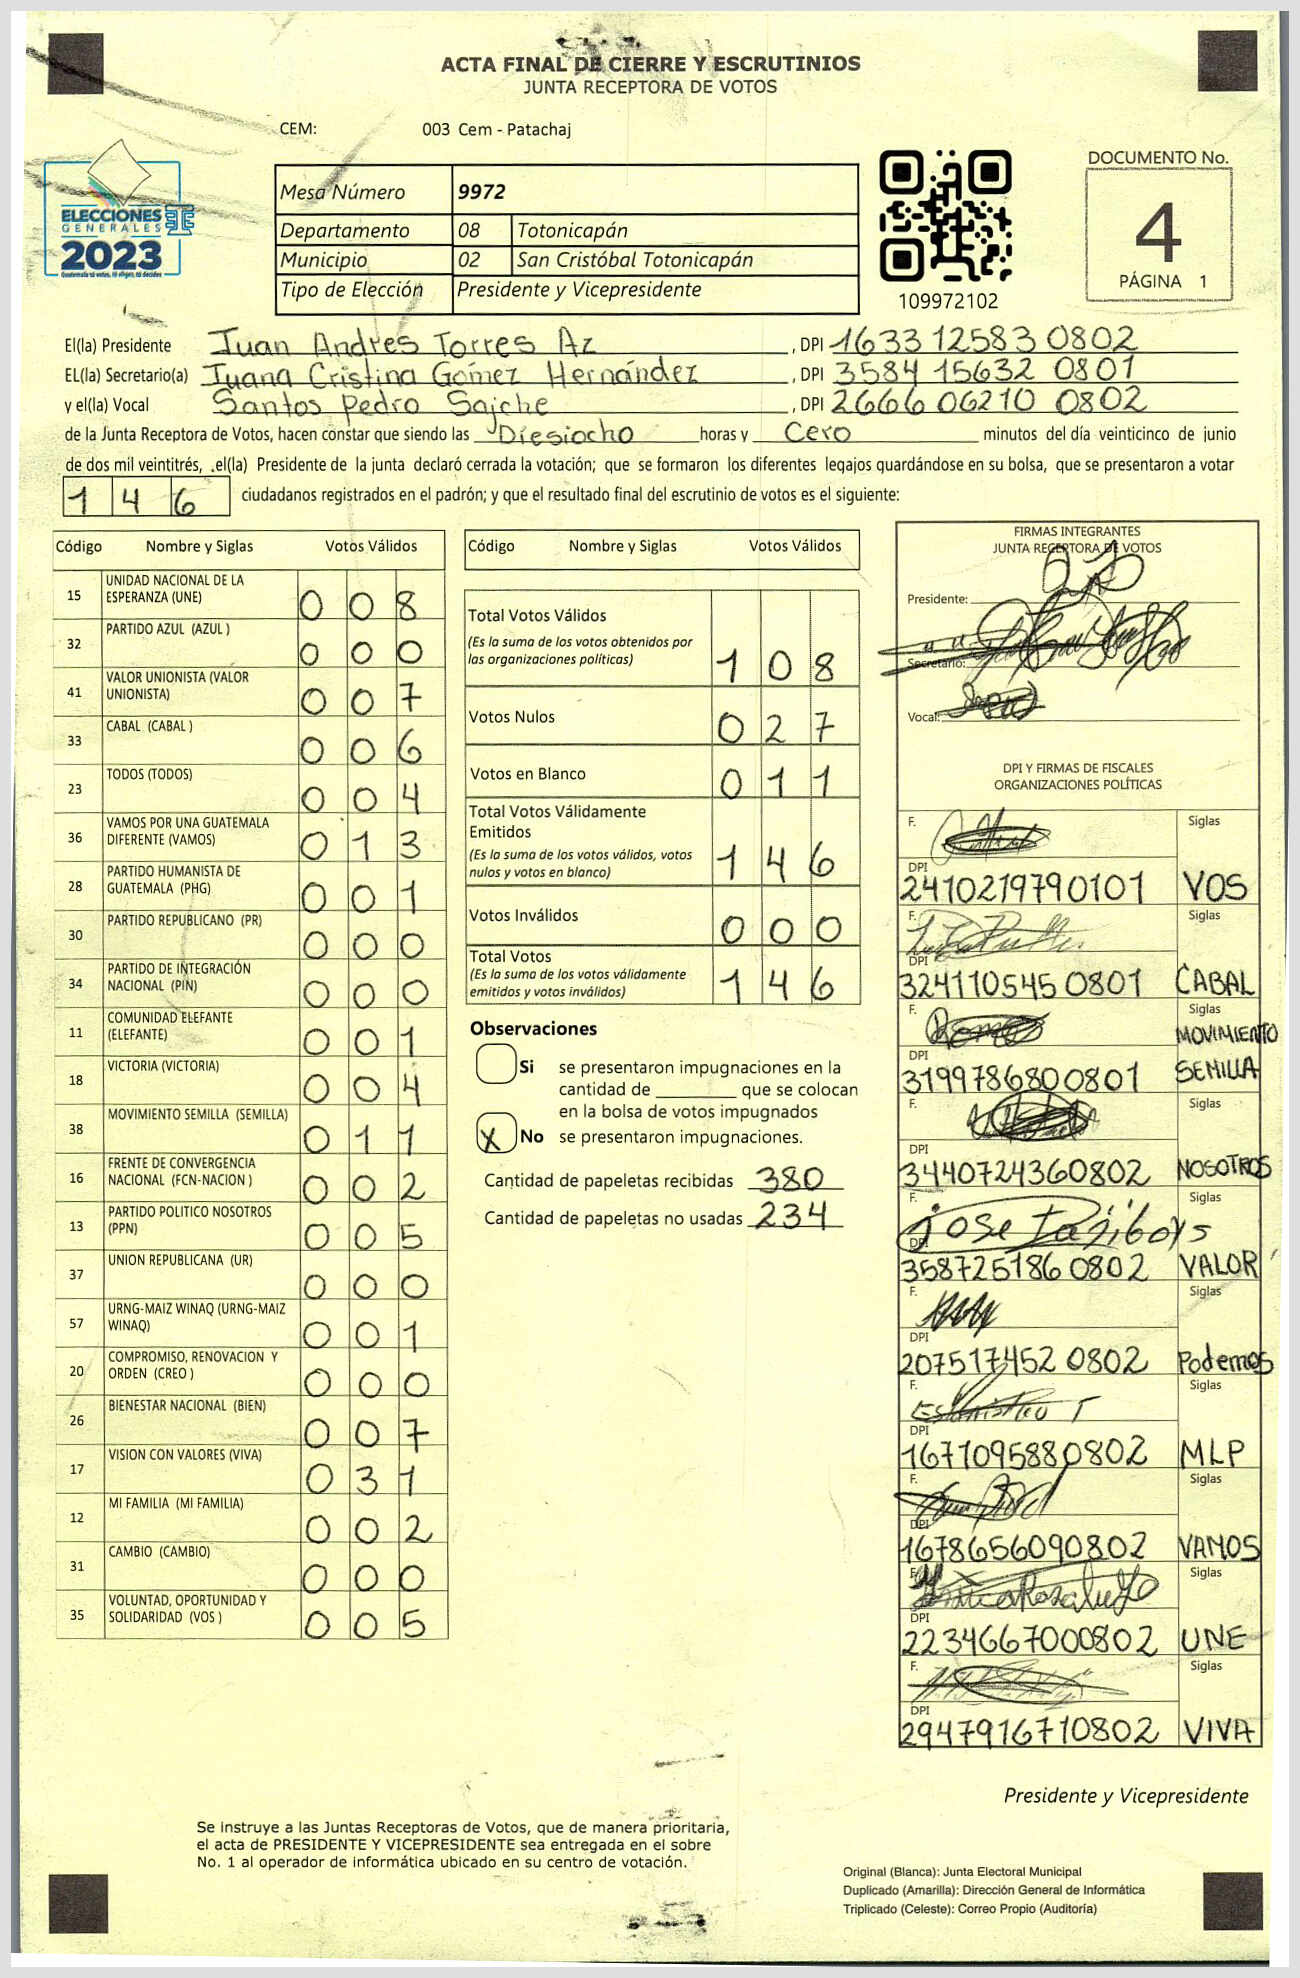 ACTA FINAL DE CIERRE Y ESCRUTINIOS
JUNTA RECEPTORA DE VOTOS
CEM: 003 Cem - Patachaj
ELECCIONES
GENERALES
2023
Guatemala tú votas, tú eliges, tú decides
Mesa Número 9972
Departamento 08 Totonicapán
Municipio 02 San Cristóbal Totonicapán
Tipo de Elección Presidente y Vicepresidente
109972102
DOCUMENTO No.
4
PÁGINA 1
El(la) Presidente Juan Andres Torres Az , DPI 1633 12583 0802
EL(la) Secretario(a) Juana Cristina Gómez Hernández , DPI 3584 15632 0801
y el(la) Vocal Santos Pedro Sajche , DPI 2666 06210 0802
de la Junta Receptora de Votos, hacen constar que siendo las Diesiocho horas y Cero minutos del día veinticinco de junio
de dos mil veintitrés, .el(la) Presidente de la junta declaró cerrada la votación; que se formaron los diferentes legajos guardándose en su bolsa, que se presentaron a votar
1 4 6 ciudadanos registrados en el padrón; y que el resultado final del escrutinio de votos es el siguiente:
Código Nombre y Siglas Votos Válidos
15 UNIDAD NACIONAL DE LA ESPERANZA (UNE) 0 0 8
32 PARTIDO AZUL (AZUL ) 0 0 0
41 VALOR UNIONISTA (VALOR UNIONISTA) 0 0 7
33 CABAL (CABAL ) 0 0 6
23 TODOS (TODOS) 0 0 4
36 VAMOS POR UNA GUATEMALA DIFERENTE (VAMOS) 0 1 3
28 PARTIDO HUMANISTA DE GUATEMALA (PHG) 0 0 1
30 PARTIDO REPUBLICANO (PR) 0 0 0
34 PARTIDO DE INTEGRACIÓN NACIONAL (PIN) 0 0 0
11 COMUNIDAD ELEFANTE (ELEFANTE) 0 0 1
18 VICTORIA (VICTORIA) 0 0 4
38 MOVIMIENTO SEMILLA (SEMILLA) 0 1 1
16 FRENTE DE CONVERGENCIA NACIONAL (FCN-NACION ) 0 0 2
13 PARTIDO POLITICO NOSOTROS (PPN) 0 0 5
37 UNION REPUBLICANA (UR) 0 0 0
57 URNG-MAIZ WINAQ (URNG-MAIZ WINAQ) 0 0 1
20 COMPROMISO, RENOVACION Y ORDEN (CREO ) 0 0 0
26 BIENESTAR NACIONAL (BIEN) 0 0 7
17 VISION CON VALORES (VIVA) 0 3 1
12 MI FAMILIA (MI FAMILIA) 0 0 2
31 CAMBIO (CAMBIO) 0 0 0
35 VOLUNTAD, OPORTUNIDAD Y SOLIDARIDAD (VOS ) 0 0 5
Código Nombre y Siglas Votos Válidos
Total Votos Válidos
(Es la suma de los votos obtenidos por
las organizaciones políticas) 1 0 8
Votos Nulos 0 2 7
Votos en Blanco 0 1 1
Total Votos Válidamente
Emitidos
(Es la suma de los votos válidos, votos
nulos y votos en blanco) 1 4 6
Votos Inválidos 0 0 0
Total Votos
(Es la suma de los votos válidamente
emitidos y votos inválidos) 1 4 6
Observaciones
Si se presentaron impugnaciones en la
cantidad de ________ que se colocan
en la bolsa de votos impugnados
X No se presentaron impugnaciones.
Cantidad de papeletas recibidas 380
Cantidad de papeletas no usadas 234
FIRMAS INTEGRANTES
JUNTA RECEPTORA DE VOTOS
Presidente:
Secretario:
Vocal:
DPI Y FIRMAS DE FISCALES
ORGANIZACIONES POLÍTICAS
F. Siglas
DPI
2410219790101 VOS
F. Siglas
DPI
324110545 0801 CABAL
F. Siglas
MOVIMIENTO
DPI
3199786800801 SEMILLA
F. Siglas
DPI
3440724360802 NOSOTROS
F. Siglas
DPI
358725186 0802 VALOR
F. Siglas
DPI
207517452 0802 Podemos
F. Siglas
DPI
1671095880802 MLP
F. Siglas
DPI
1678656090802 VAMOS
F. Siglas
DPI
2234667000802 UNE
F. Siglas
DPI
2947916710802 VIVA
Presidente y Vicepresidente
Se instruye a las Juntas Receptoras de Votos, que de manera prioritaria,
el acta de PRESIDENTE Y VICEPRESIDENTE sea entregada en el sobre
No. 1 al operador de informática ubicado en su centro de votación.
Original (Blanca): Junta Electoral Municipal
Duplicado (Amarilla): Dirección General de Informática
Triplicado (Celeste): Correo Propio (Auditoría)